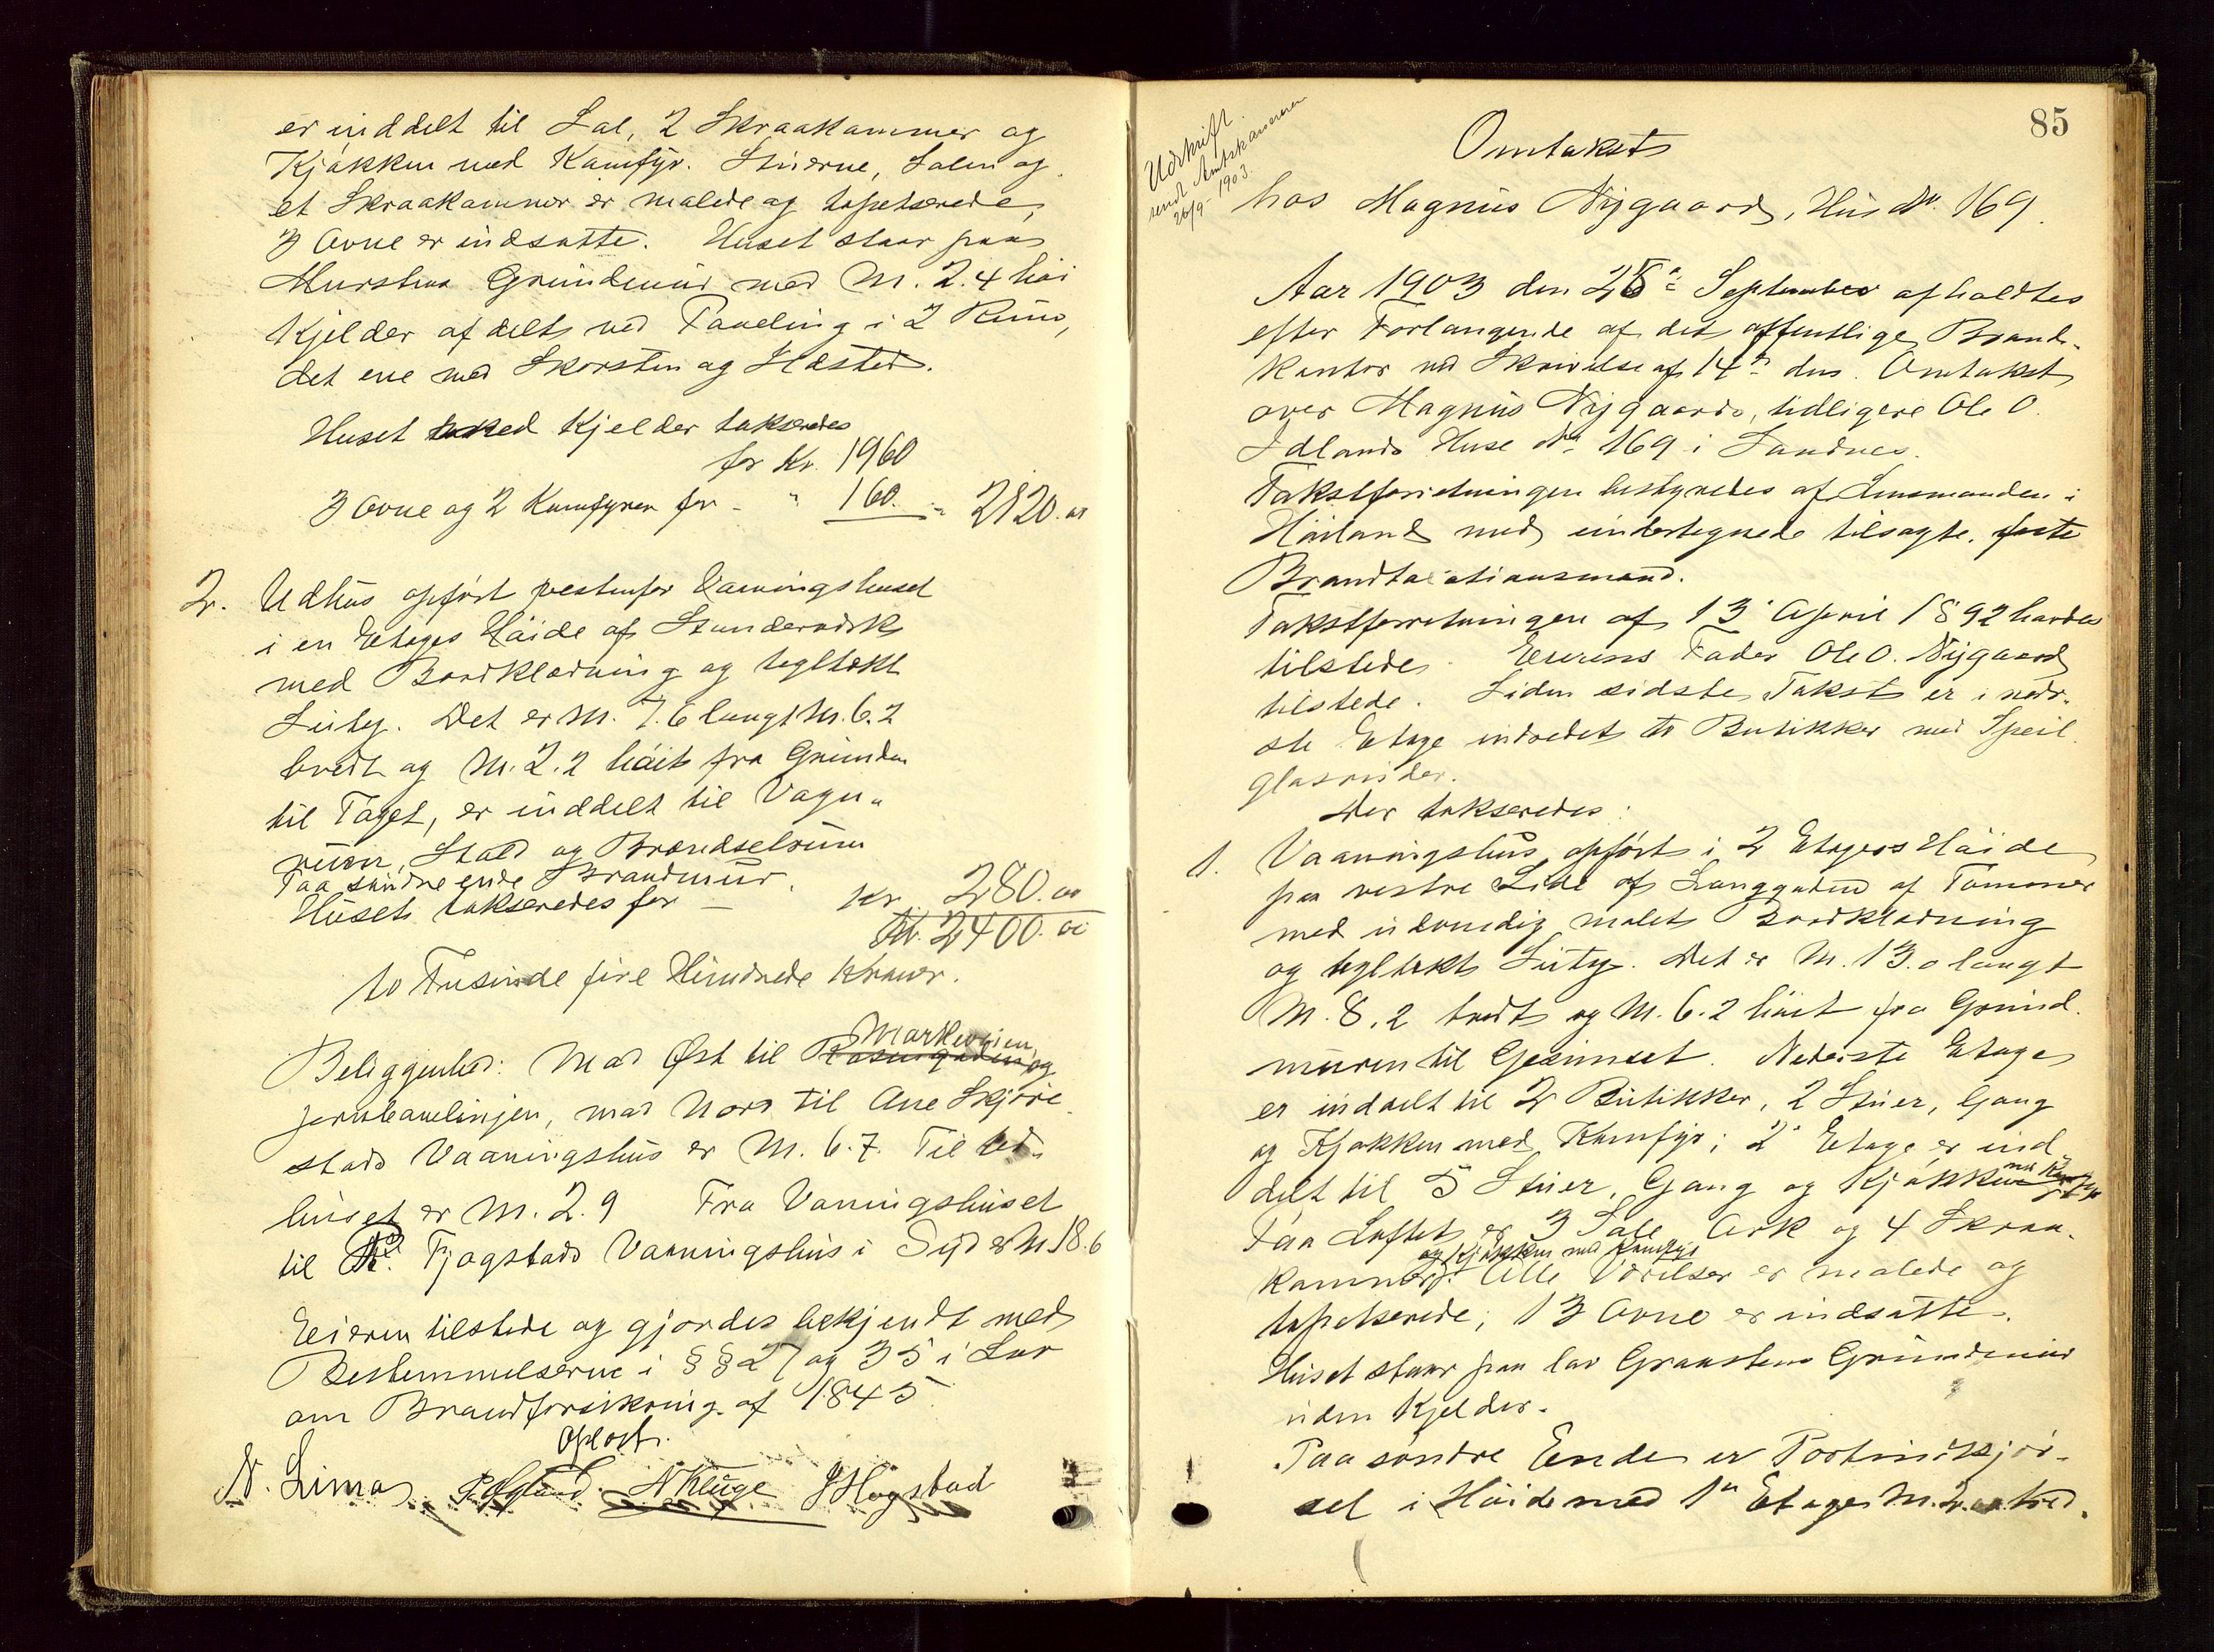 er inddelt til Sal, 2 Skraakammer og
Kjøkken med Kamfyr. Stuerne, Salen og
et Skraakammer er malede og tapetserede,
3 Ovne er indsatte. Huset staar paa
Mursten Grundmur med M. 2.4 høi
Kjelder afdelt ved Paneling i 2 Rum,
det ene med Skorsten og Ildsted.
Huset med Kjelder takseredes
for Kr. 1960
3 Ovne og 2 Kamfyrer for - " 160. = 2120.00
2. Udhus opført vestenfor Vaaningshuset
i en Etages Høide af Stenderværk
med Bordklædning og teglkt
Sutag. Det er M. 7.6 langt M. 6.2
bredt og M. 2.2 høit fra Grunden
til Taget, er inddelt til Vogn-
rum, Stald og Brændselrum
Paa søndre ende Brandmur.
Huset takseredes for - Kr. 280.00
Kr. 2400.00
to Tusinde fire Hundrede Kroner.
Markveien
Beliggenhed: Mod Øst til og
jernbanelinjen, mod Nord til Ane Skjøre-
stads Vaaningshus er M. 6.7. Til Ud-
huset er M. 2.9 Fra Vaningshuset
til Fjogstads Vaaningshus i Syd er M 18.6
Eieren tilstede og gjordes bekjendt med
Bestemmelserne i §§ 27 og 35 i Lov
om Brandforsikring af 1845.
Oplæst.
N. Lima N Kluge J Hogstad
85
Udskrift
sendt Amtskasseren
26/9-1903.
Omtakst
hos Magnus Nygaard, Hus No. 169.
Aar 1903 den 25de September afholdtes
efter Forlangende af det offentlige Brand-
kontor ved Skrivelse af 14de ds. Omtakst
over Magnus Nygaards, tidligere Ole O.
Idlands Huse No 169 i Sandnes.
Takstforretningen bestyredes af Lensmanden i
Høiland med undertegnede tilsagte, faste
Brandtaxationsmænd.
Takstforretningen af 13 April 1892 havdes
tilstede. Eierens Fader Ole O. Nygaard
tilstede. Siden sidste Takst er i neder-
ste Etage indredet to Butikker med Speil-
glasruder.
Der takseredes:
1. Vaaningshus, opført i 2 Etagers Høide
paa vestre Side af Langgaden af Tømmer
med udvendig malet Bordklædning
og teglkt Sutag. Det er M. 13.0 langt
M. 8.2 bredt og M. 6.2 høit fra Grund-
muren til Gesimset. Nederste Etage
er inddelt til 2 Butikker, 2 Stuer, Gang
og Kjøkken med Kamfyr; 2' Etage er ind-
delt til 5 Stuer, Gang og Kjøkken med Kamfyr
Paa Loftet er 3 Sale Ark og 4 Skraa-
og Kjøkken med Kamfyr
kammer. Alle Værelser er malede og
tapetserede; 13 Ovne er indsatte.
Huset staar paa lav Graastens Grundmur
uden Kjelder.
Paa søndre Ende er Portindkjør-
sel i Høide med 1ste Etage M. bred.